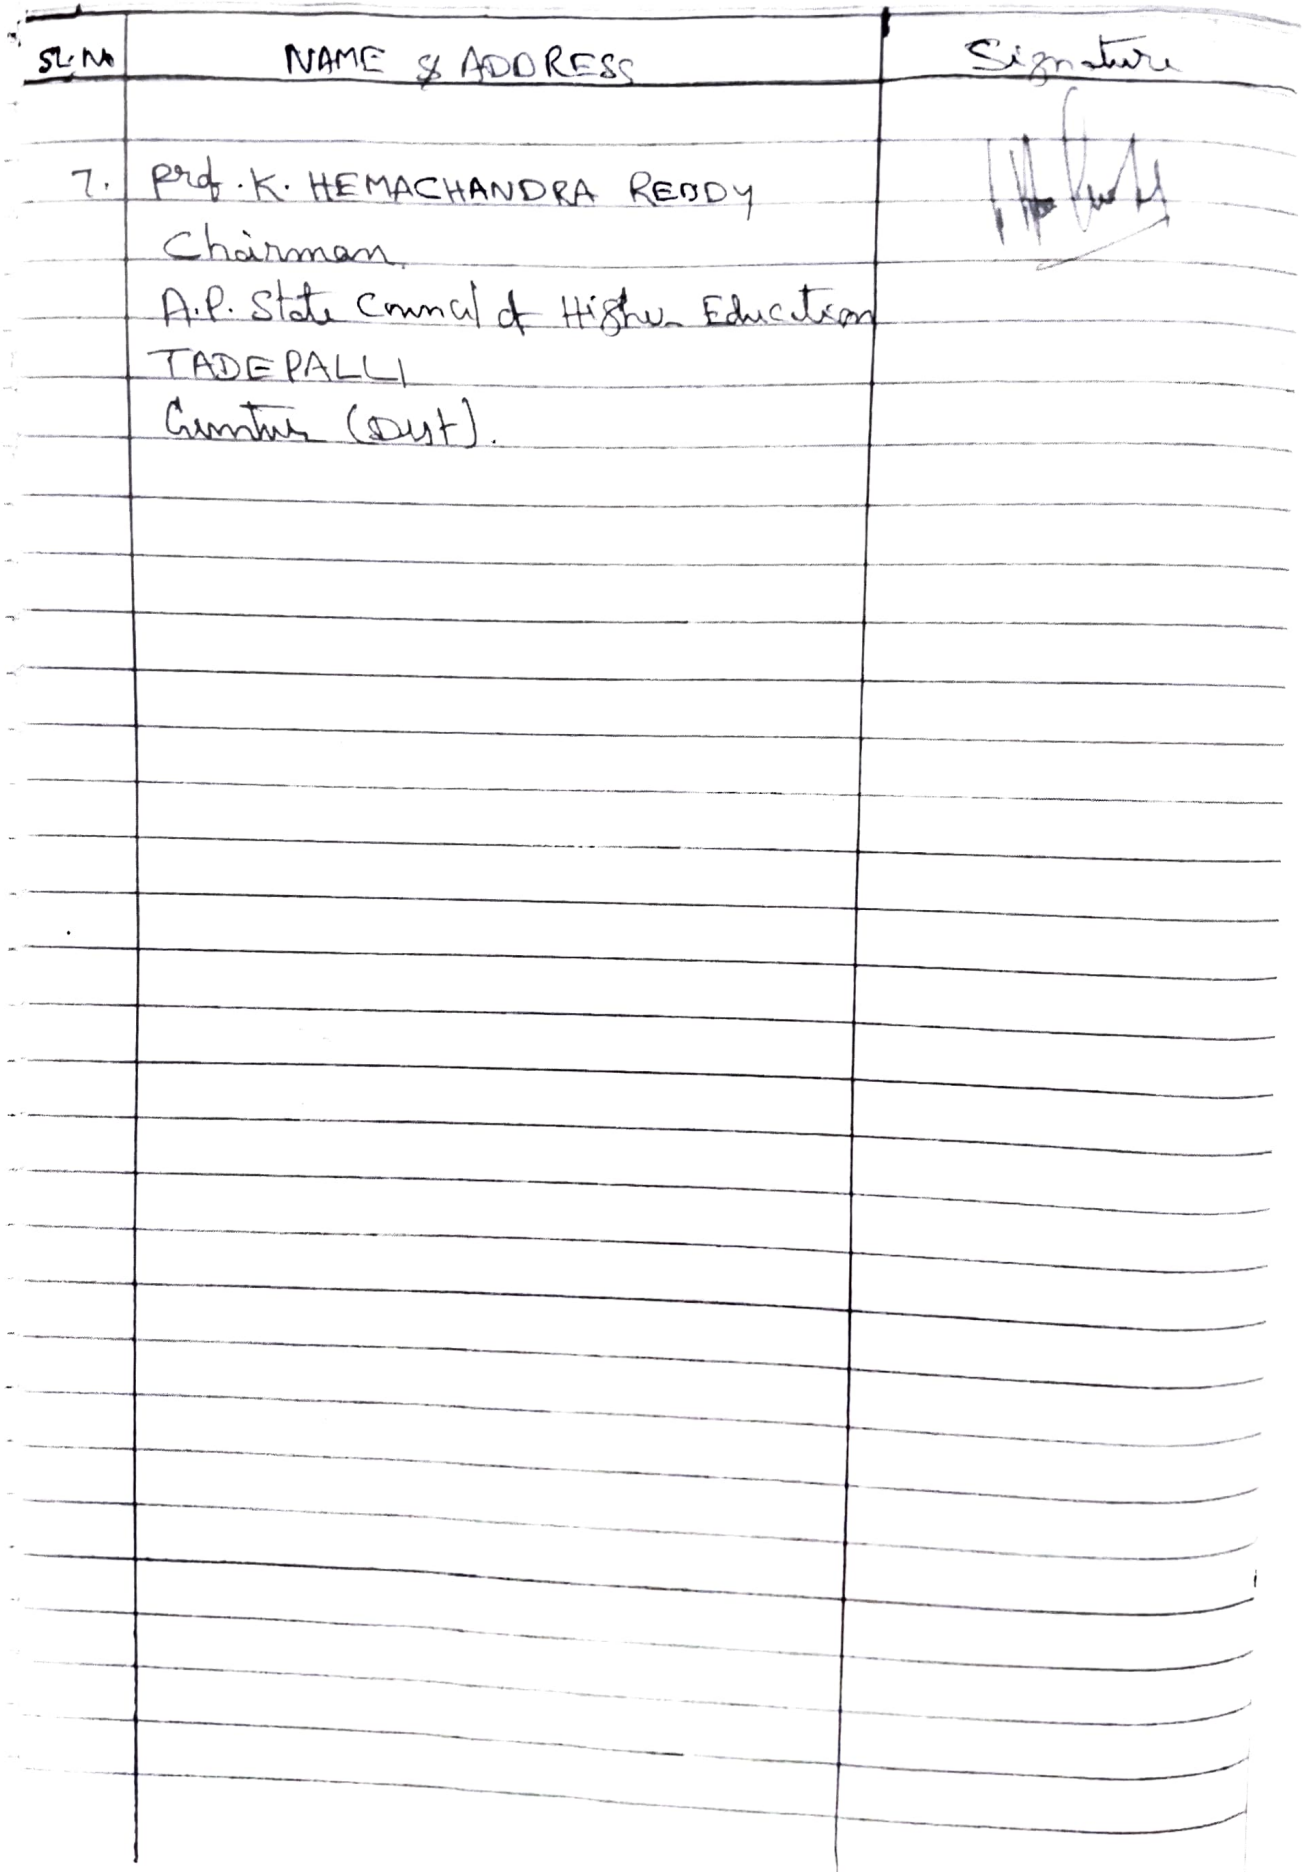 SL. No NAME & ADDRESS Signature
7. Prof. K. HEMACHANDRA REDDY
Chairman
A.P. State Council of Higher Education
TADEPALLI
Guntur (Dist).